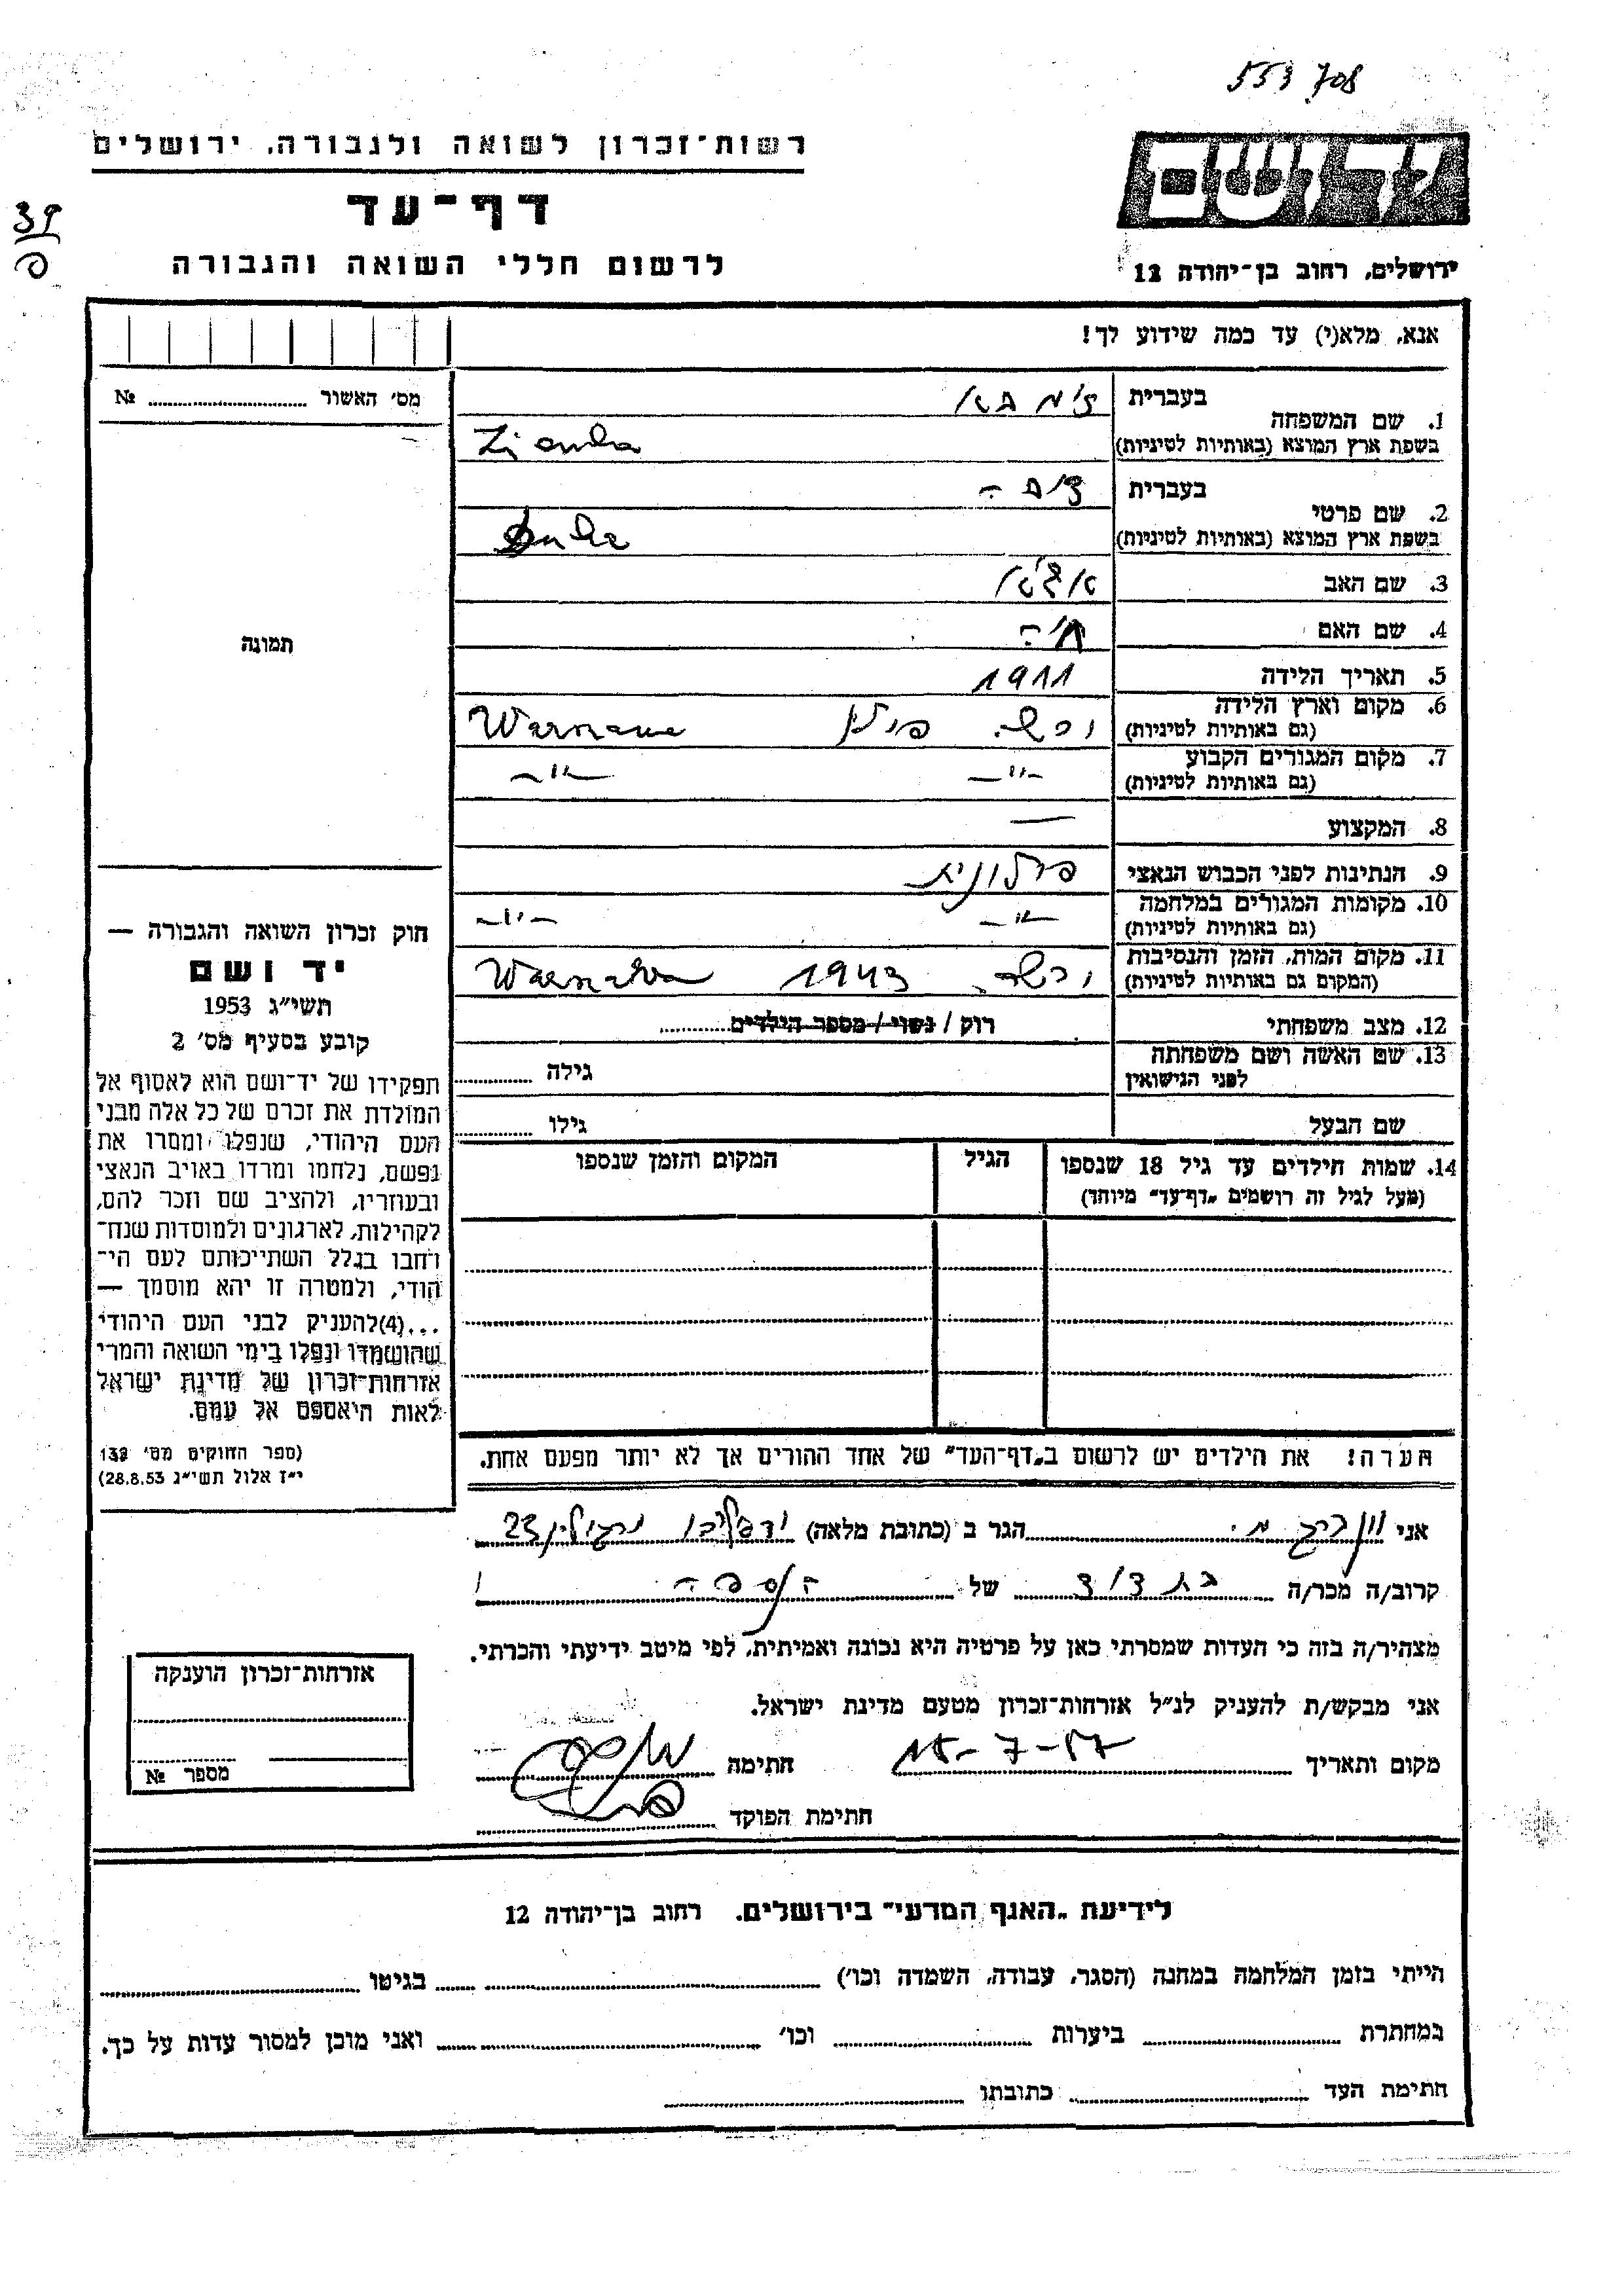 553708
רשות־זכרון לשואה ולגבורה, ירושלים
יד ושם
דף־עד
39
לרשום חללי השואה והגבורה
ירושלים, רחוב בן־יהודה 12
אנא, מלא(י) עד כמה שידוע לך!
מס׳ האשור № 
בעברית
1. שם המשפחה
בשפת ארץ המוצא (באותיות לטיניות)
בעברית
2. שם פרטי
בשפת ארץ המוצא (באותיות לטיניות)
3. שם האב
4. שם האם חיה
5. תאריך הלידה 1911
6. מקום וארץ הלידה
(גם באותיות לטיניות) ורשה פולין Warszawa
7. מקום המגורים הקבוע
(גם באותיות לטיניות) -״- -״-
8. המקצוע —
9. הנתינות לפני הכבוש הנאצי פולונית
10. מקומות המגורים במלחמה
(גם באותיות לטיניות) -״- -״-
11. מקום המות, הזמן והנסיבות
(המקום גם באותיות לטיניות) ורשה 1943 Warszawa
12. מצב משפחתי רוק / נשוי / מספר הילדים
13. שם האשה ושם משפחתה
לפני הנישואין גילה
שם הבעל גילו
14. שמות חילדים עד גיל 18 שנספו הגיל המקום והזמן שנספו
(מעל לגיל זה רושמים „דף־עד״ מיוחד)
תמונה
חוק זכרון השואה והגבורה —
יד ושם
תשי״ג 1953
קובע בסעיף מס׳ 2
תפקידו של יד־ושם הוא לאסוף אל
המולדת את זכרם של כל אלה מבני
העם היהודי, שנפלו ומסרו את
נפשם, נלחמו ומרדו באויב הנאצי
ובעוזריו, ולהציב שם וזכר להם,
לקהילות, לארגונים ולמוסדות שנח־
רחבו בגלל השתייכותם לעם הי־
הודי, ולמטרה זו יהא מוסמך —
...(4)להעניק לבני העם היהודי
שהושמדו ונפלו בימי השואה והמרי
אזרחות־זכרון של מדינת ישראל
לאות היאספם אל עמם.
(ספר החוקים מס׳ 132
י״ז אלול תשי״ג 28.8.53)
הערה! את הילדים יש לרשום ב„דף־העד״ של אחד ההורים אך לא יותר מפעם אחת.
אני הגר ב (כתובת מלאה) 23
קרוב/ה מכר/ה בת דוד של הנספה
מצהיר/ה בזה כי העדות שמסרתי כאן על פרטיה היא נכונה ואמיתית, לפי מיטב ידיעתי והכרתי.
אני מבקש/ת להעניק לנ״ל אזרחות־זכרון מטעם מדינת ישראל.
מקום ותאריך חתימה
חתימת הפוקד
אזרחות־זכרון הוענקה
מספר №
לידיעת „האגף המדעי״ בירושלים, רחוב בן־יהודה 12
הייתי בזמן המלחמה במחנה (הסגר, עבודה, השמדה וכו׳) בגיטו
במחתרת ביערות וכו׳ ואני מוכן למסור עדות על כך.
חתימת העד כתובתו